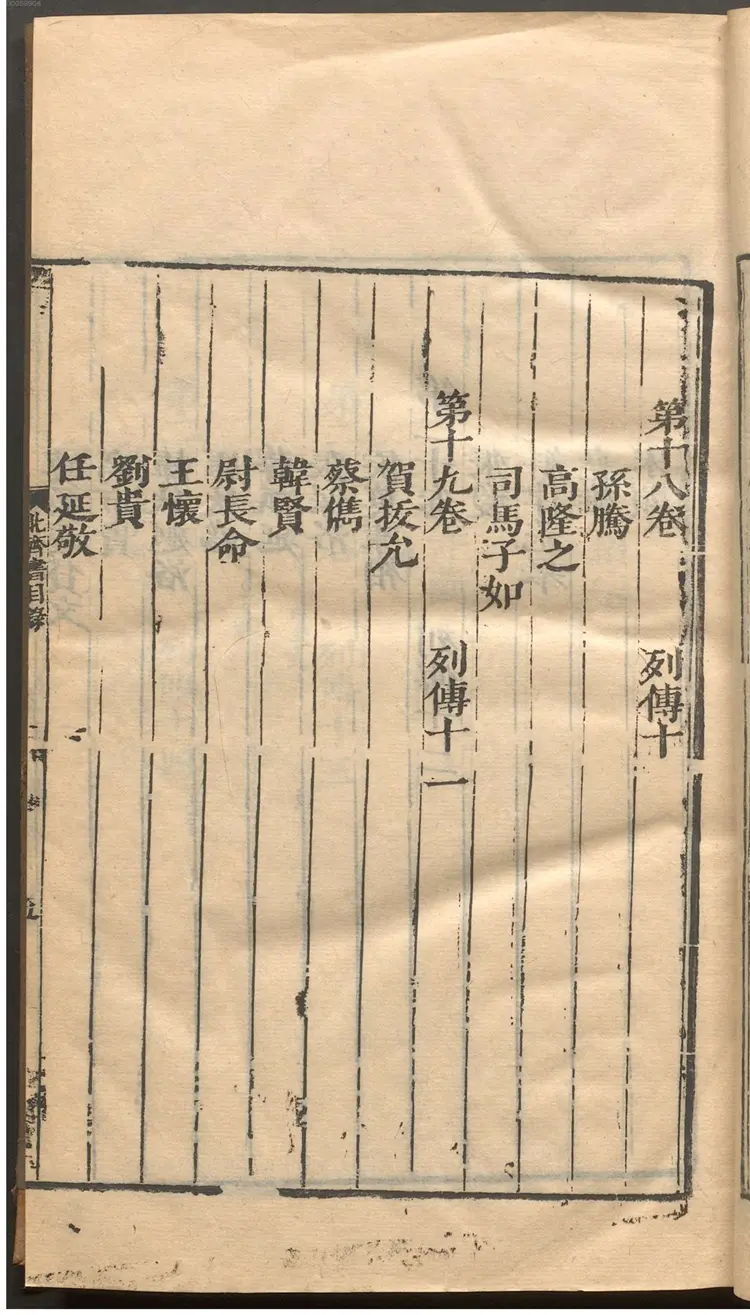 第十八卷 列傳十
孫騰
高隆之
司馬子如
第十九卷 列傳十一
賀拔允
蔡儁
韓賢
尉長命
王懷
劉貴
任延敬
北齊書目錄